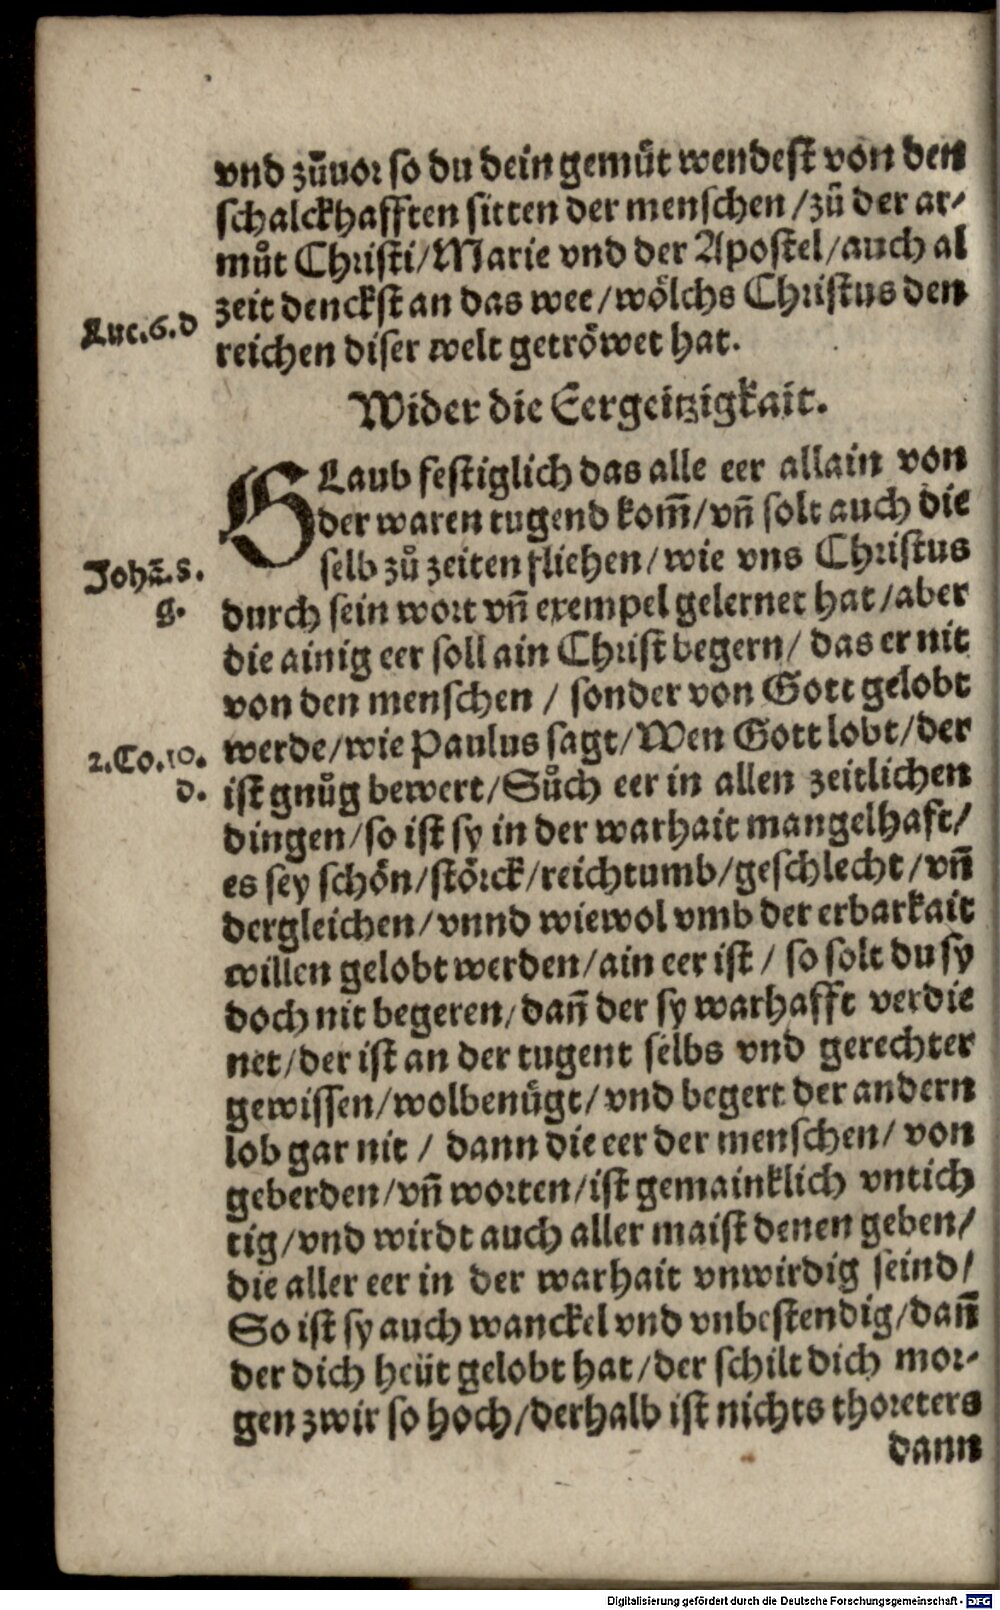 vnd zůuor so du dein gemüt wendest von den
schalckhafften sitten der menschen / zů der ar-
můt Christi / Marie vnd der Apostel / auch al
zeit denckst an das wee / wölchs Christus den
Luc.6.d
reichen diser welt getröwet hat.
Wider die Eergeitzigkait.
GLaub festiglich das alle eer allain von
der waren tugend kom̃ / vñ solt auch die
selb zů zeiten fliehen / wie vns Christus
Johã.8.
g.
durch sein wort vñ exempel gelernet hat / aber
die ainig eer soll ain Christ begern / das er nit
von den menschen / sonder von Gott gelobt
2.Co.10.
d.
werde / wie Paulus sagt / Wen Gott lobt / der
ist gnůg bewert / Sůch eer in allen zeitlichen
dingen / so ist sy in der warhait mangelhaft /
es sey schön / störck / reichtumb / geschlecht / vñ
dergleichen / vnnd wiewol vmb der erbarkait
willen gelobt werden / ain eer ist / so solt du sy
doch nit begeren / dañ der sy warhafft verdie
net / der ist an der tugent selbs vnd gerechter
gewissen / wolbenügt / vnd begert der andern
lob gar nit / dann die eer der menschen / von
geberden / vñ worten / ist gemainklich vntich
tig / vnd wirdt auch aller maist denen geben /
die aller eer in der warhait vnwirdig seind /
So ist sy auch wanckel vnd vnbestendig / dañ
der dich heüt gelobt hat / der schilt dich mor-
gen zwir so hoch / derhalb ist nichts thoreters
dann
Digitalisierung gefördert durch die Deutsche Forschungsgemeinschaft - DFG